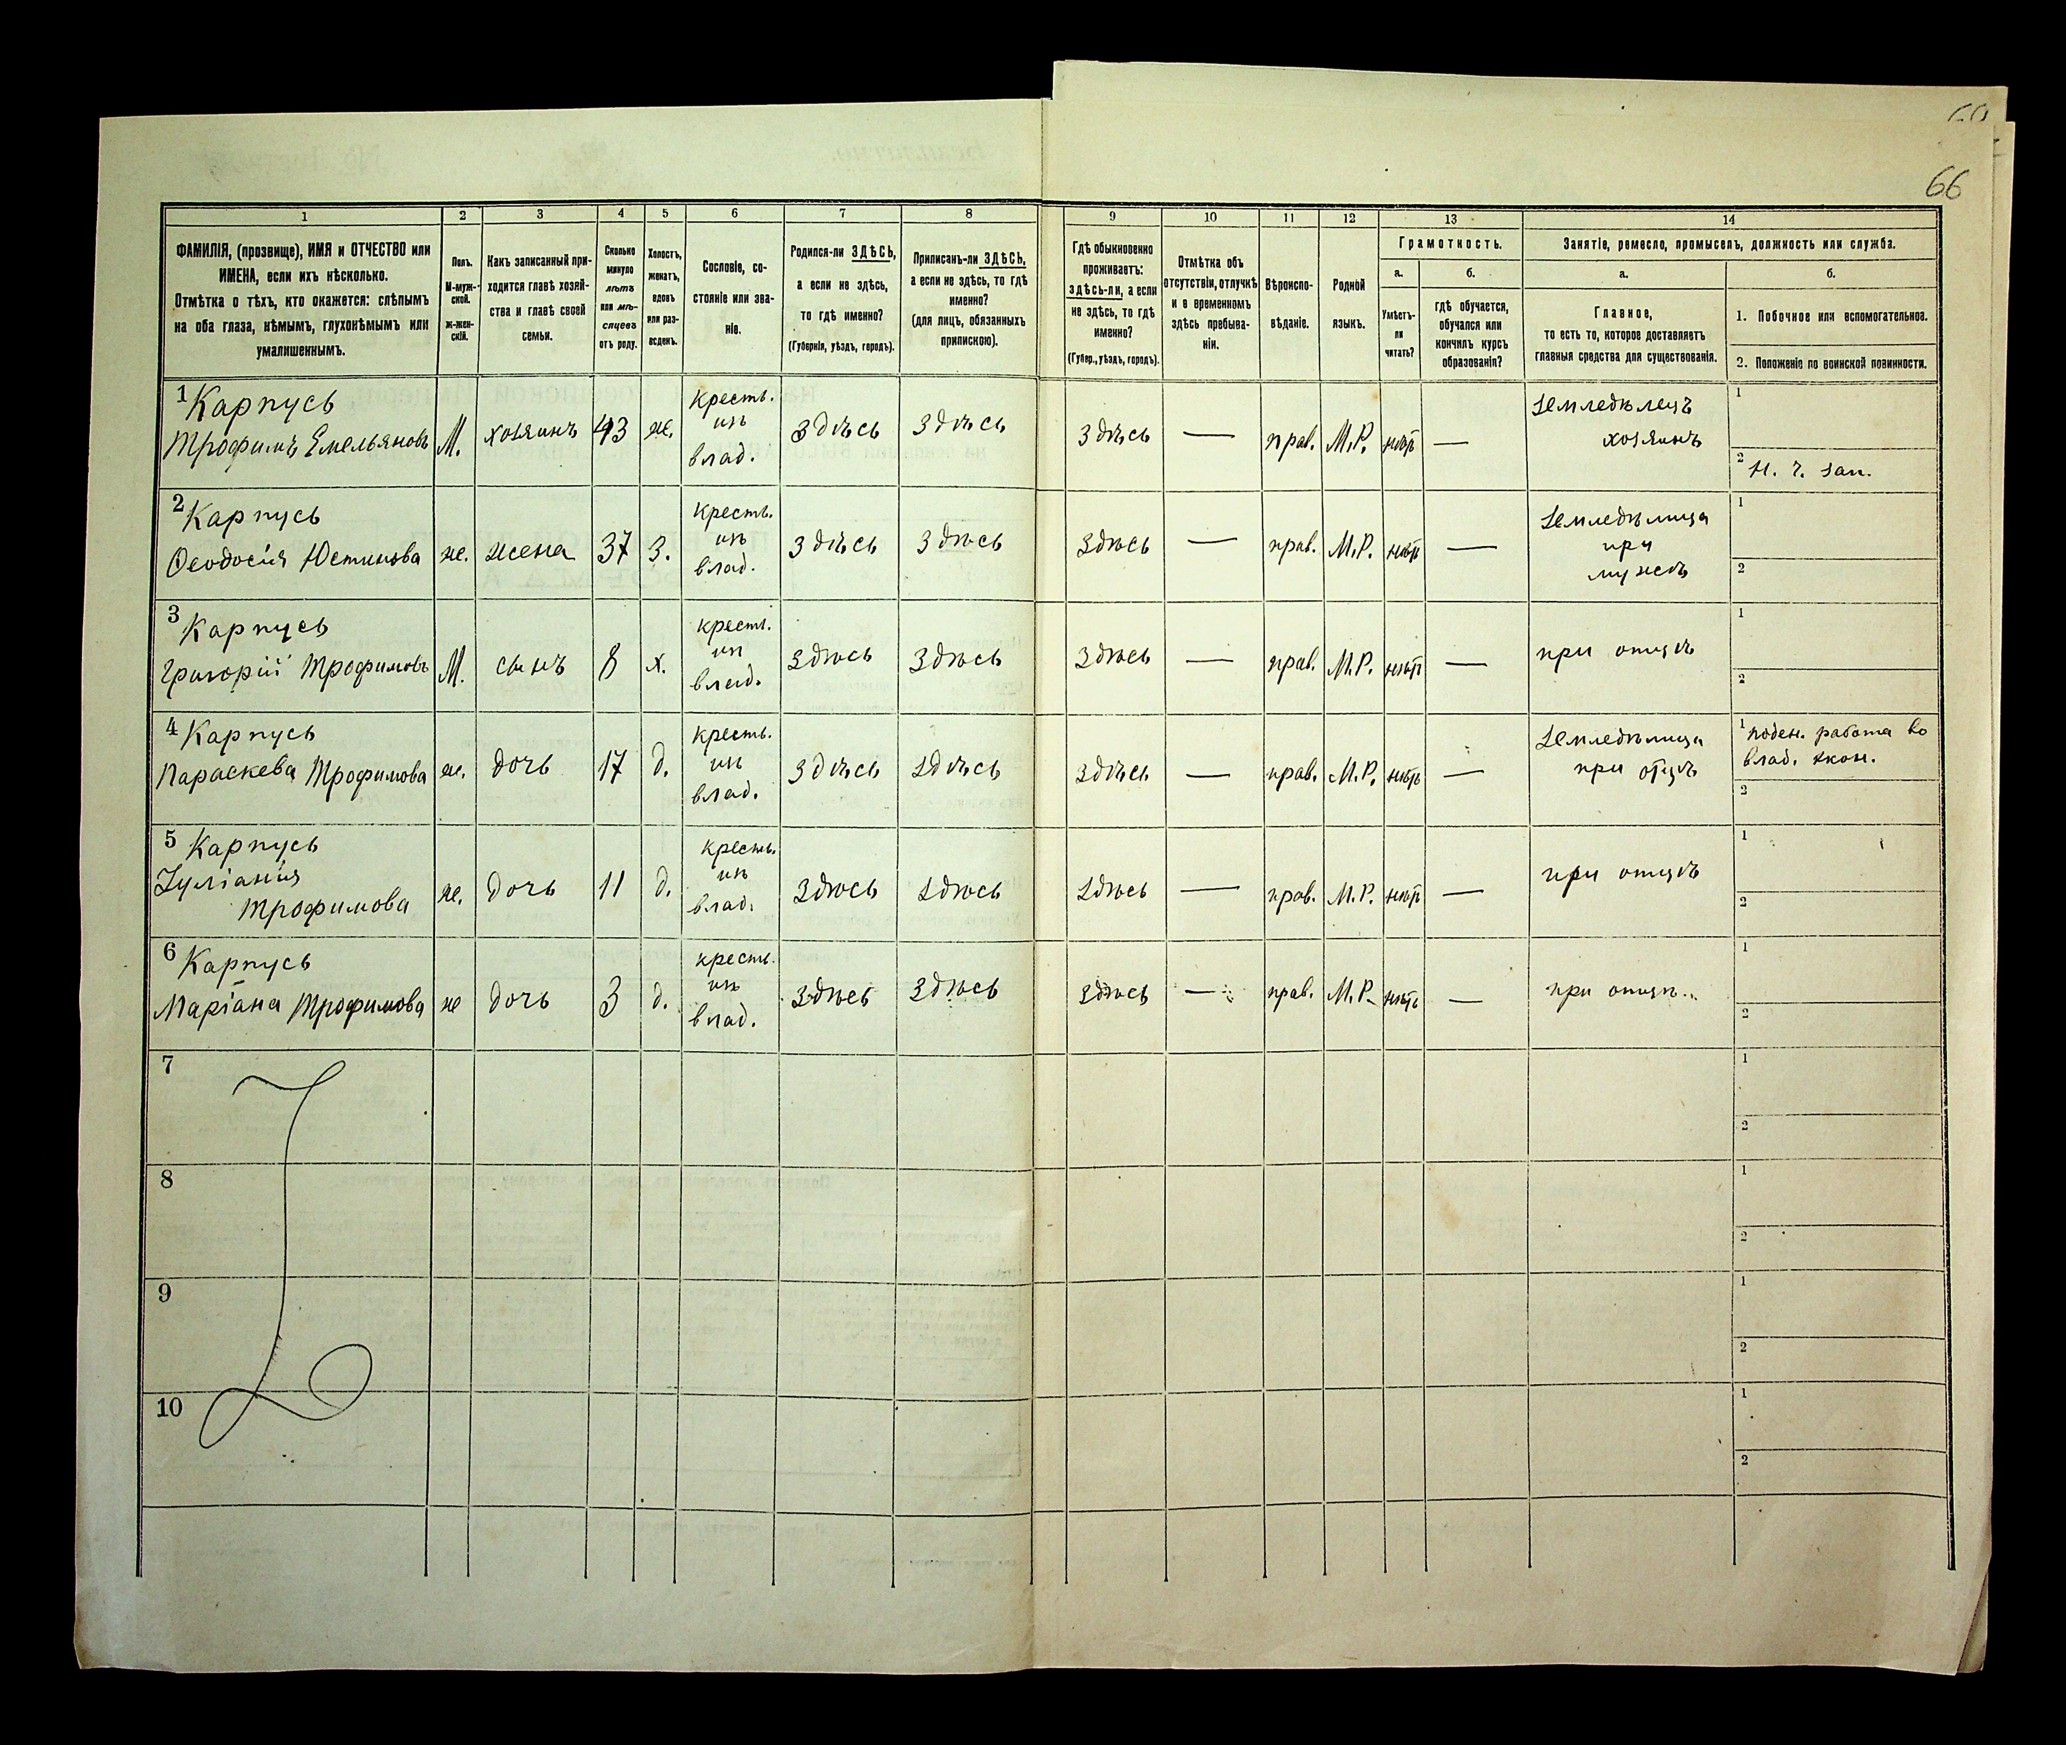 66
1 2 3 4 5 6 7 8 9 10 11 12 13 14
ФАМИЛІЯ, (прозвище), ИМЯ и ОТЧЕСТВО или
ИМЕНА, если ихъ нѣсколько.
Отмѣтка о тѣхъ, кто окажется: слѣпымъ
на оба глаза, нѣмымъ, глухонѣмымъ или
умалишеннымъ.
Полъ.
М-муж-
ской.
ж-жен-
скій.
Какъ записанный при-
ходится главѣ хозяй-
ства и главѣ своей
семьи.
Сколько
минуло
лѣтъ
или мѣ-
сяцевъ
отъ роду.
Холостъ,
женатъ,
вдовъ
или раз-
веденъ.
Сословіе, со-
стояніе или зва-
ніе.
Родился-ли ЗДѢСЬ,
а если не здѣсь,
то гдѣ именно?
(Губернія, уѣздъ, городъ).
Приписанъ-ли ЗДѢСЬ,
а если не здѣсь, то гдѣ
именно?
(для лицъ, обязанныхъ
припискою).
Гдѣ обыкновенно
проживаетъ:
здѣсь-ли, а если
не здѣсь, то гдѣ
именно?
(Губер., уѣздъ, городъ).
Отмѣтка объ
отсутствіи, отлучкѣ
и о временномъ
здѣсь пребыва-
ніи.
Вѣроиспо-
вѣданіе.
Родной
языкъ.
Грамотность.
а.
Умѣетъ-
ли
читать?
б.
гдѣ обучается,
обучался или
кончилъ курсъ
образованія?
Занятіе, ремесло, промыселъ, должность или служба.
а.
Главное,
то есть то, которое доставляетъ
главныя средства для существованія.
б.
1. Побочное или вспомогательное.
2. Положеніе по воинской повинности.
1 Карпусь
Трофимъ Емельяновъ М. хозяинъ 43 ж. крестъ. изъ влад. здѣсь здѣсь здѣсь — прав. М.Р. нѣтъ — земледѣлецъ хозяинъ 1
2 н. ч. зап.
2 Карпусь
Ѳеодосія Юстинова ж. жена 37 З. крестъ. изъ влад. здѣсь здѣсь здѣсь — прав. М.Р. нѣтъ — земледѣлица при мужѣ 1
2
3 Карпусь
Григорій Трофимовъ М. сынъ 8 х. крестъ. изъ влад. здѣсь здѣсь здѣсь — прав. М.Р. нѣтъ — при отцѣ 1
2
4 Карпусь
Параскева Трофимова ж. дочь 17 д. крестъ. изъ влад. здѣсь здѣсь здѣсь — прав. М.Р. нѣтъ — земледѣлица при отцѣ 1 поден. работа во
влад. экон.
2
5 Карпусь
Іуліанія
Трофимова ж. дочь 11 д. крестъ. изъ влад. здѣсь здѣсь здѣсь — прав. М.Р. нѣтъ — при отцѣ 1
2
6 Карпусь
Маріана Трофимова ж дочь 3 д. крестъ. изъ влад. здѣсь здѣсь здѣсь — прав. М.Р. нѣтъ — при отцѣ 1
2
7 1
2
8 1
2
9 1
2
10 1
2